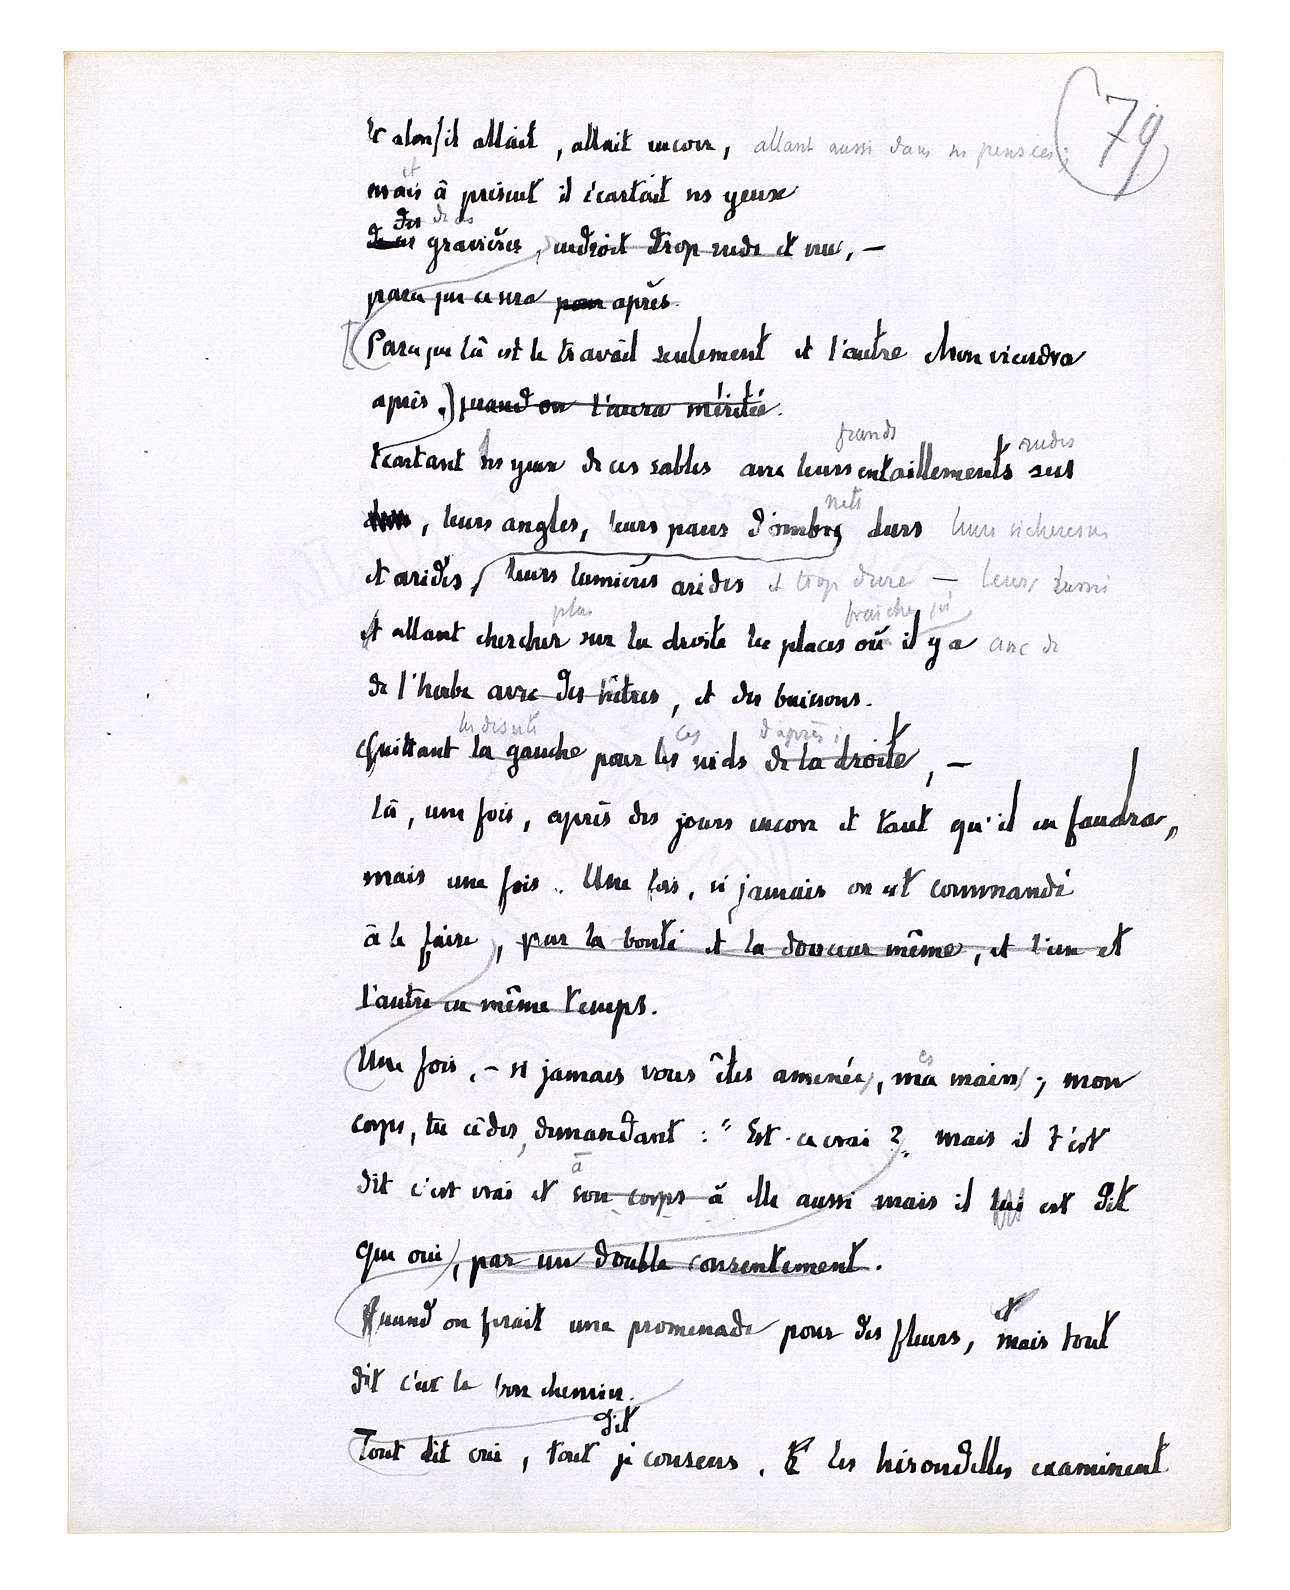 79
Et alors il allait, allait encore, allant aussi dans ses pensées ;
et
mais à présent il écartait ses yeux
des de ces
de ces gravières, endroit trop rude et nu, —
parce que ce sera pour après.
Parce que là est le travail seulement et l'autre chose viendra
après.) quand on l'aura mérité.
grands rudes
Écartant ses yeux de ces sables avec leurs entaillements secs
nets
, leurs angles, leurs pans d'ombre durs leurs sécheresses
et arides, leurs lumières arides et trop dure — leurs lumi
plus fraîches où
Et allant chercher sur la droite les places où il y a avec de
de l'herbe avec des hêtres, et des buissons.
les déserts ces d'après ;
Quittant la gauche pour les nids de la droite, —
là, une fois, après des jours encore et tant qu'il en faudra,
mais une fois. Une fois, si jamais on est commandé
à le faire, par la bonté et la douceur même, et l'un et
l'autre en même temps.
Une fois, — si jamais vous êtes amenées, mes mains ; mon
corps, tu cèdes, demandant : "Est-ce vrai ?" mais il t'est
à
dit c'est vrai et son corps à elle aussi mais il lui est dit
que oui), par un double consentement.
et
Quand on ferait une promenade pour des fleurs, mais tout
dit c'est le bon chemin.
dit
Tout dit oui, tout je consens. Et les hirondelles examinent